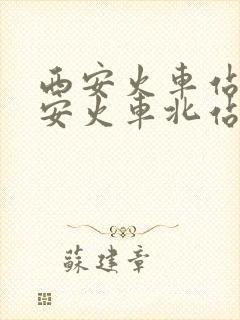 西安火車佔
安火車北佔
蘇建章